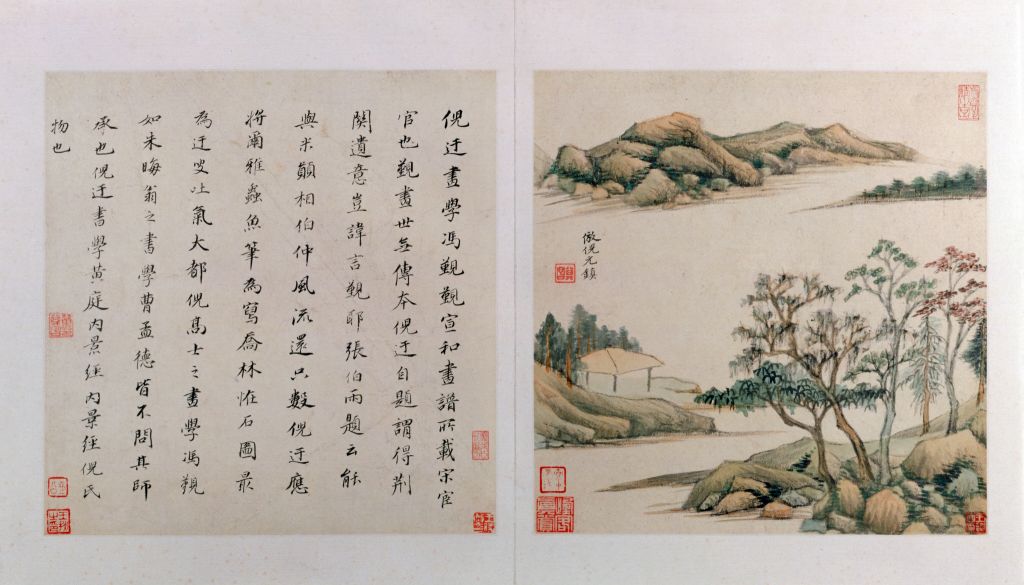 倣倪元鎮
倪迂畫學馮覲覲宣和畫譜所載宋宦
官也覲畫世無傳本倪迂自題謂得荆
關遺意豈諱言覲耶張伯雨題云能
與米顛相伯仲風流還只數倪迂應
將爾雅蟲魚筆為寫喬林恠石圖最
為迂叟吐氣大都倪高士之畫學馮覲
如朱晦翁之書學曹孟德皆不問其師
承也倪迂書學黃庭內景經內景經倪氏
物也